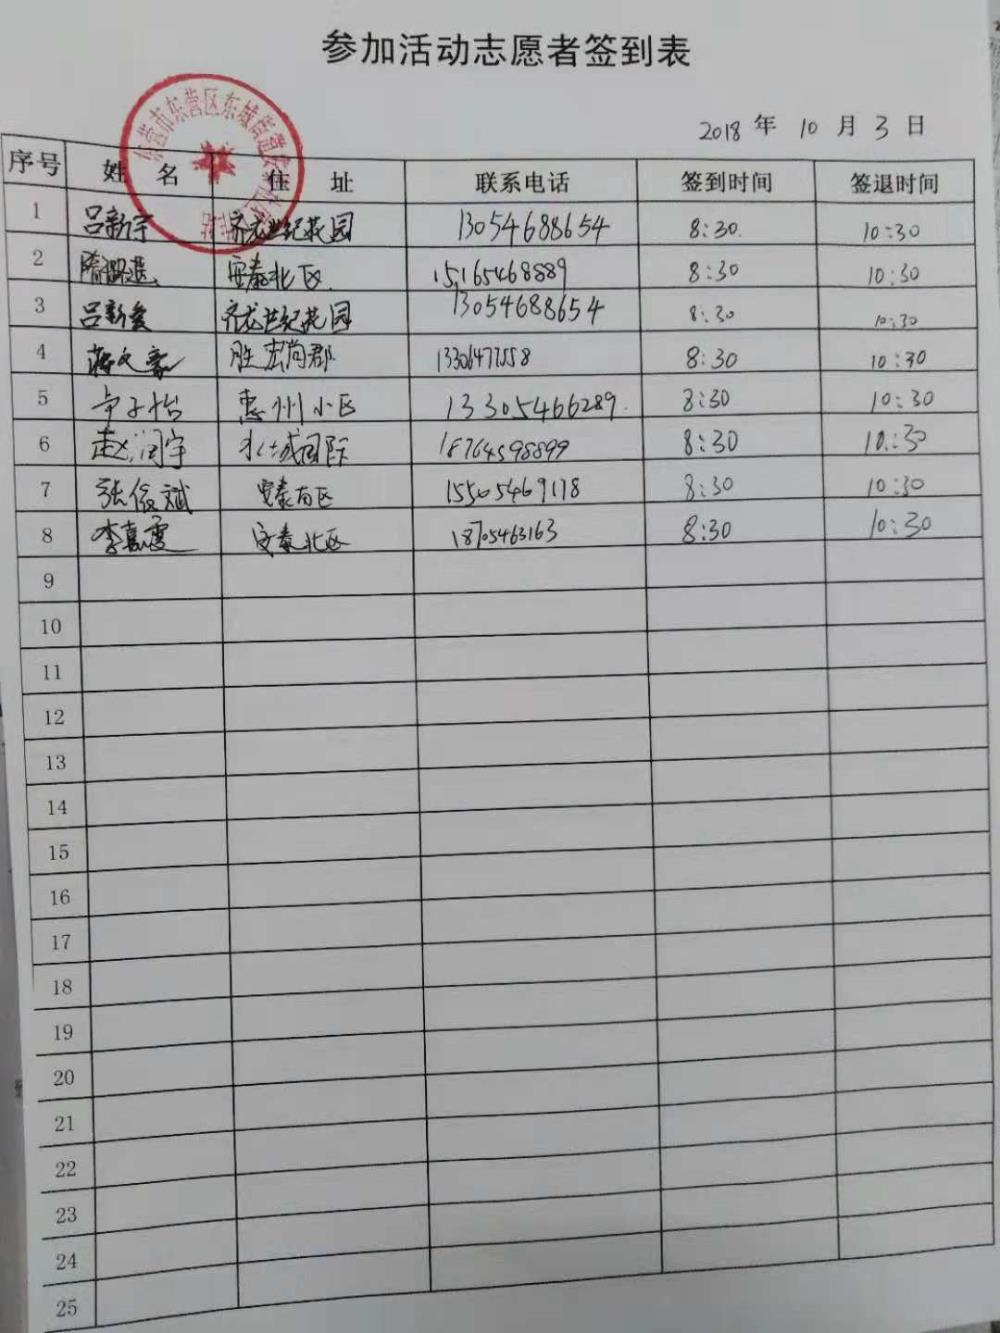 参加活动志愿者签到表
2018 年 10 月 3 日
序号 姓 名 住 址 联系电话 签到时间 签退时间
1 吕新宇 齐龙世纪花园 13054688654 8:30 10:30
2 隋 安泰北区 15165468889 8:30 10:30
3 吕新 齐龙世纪花园 13054688654 8:30 10:30
4 蒋文豪 胜宏尚郡 13306477558 8:30 10:30
5 子怡 惠州小区 13305466289 8:30 10:30
6 赵润宇 水城国际 18764598899 8:30 10:30
7 张俊斌 安泰南区 15505469118 8:30 10:30
8 李嘉霞 安泰北区 18705463163 8:30 10:30
9
10
11
12
13
14
15
16
17
18
19
20
21
22
23
24
25